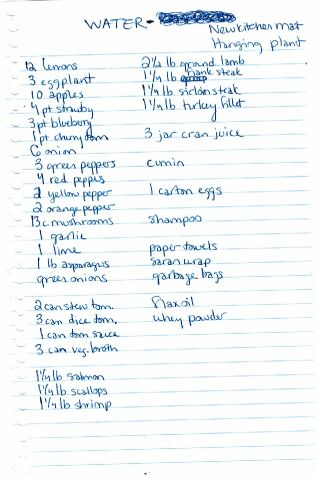 WATER-
New kitchen mat
Hanging plant
12 lemons
3 eggplant
10 apples
4 pt strawby
3 pt blueberry
1 pt cherry tom
6 onion
3 green peppers
4 red peppers
2 yellow pepper
2 orange pepper
13 c mushrooms
1 garlic
1 lime
1 lb asparagus
green onions
2 can stew tom.
3 can dice tom.
1 can tom sauce
3 can veg. broth
1 1/4 lb salmon
1 1/4 lb scallops
1 1/4 lb shrimp
2 1/2 lb ground lamb
1 1/4 lb flank steak
1 1/4 lb sirloin steak
1 1/4 lb turkey fillet
3 jar cran juice
cumin
1 carton eggs
shampoo
paper towels
saran wrap
garbage bags
flax oil
whey powder